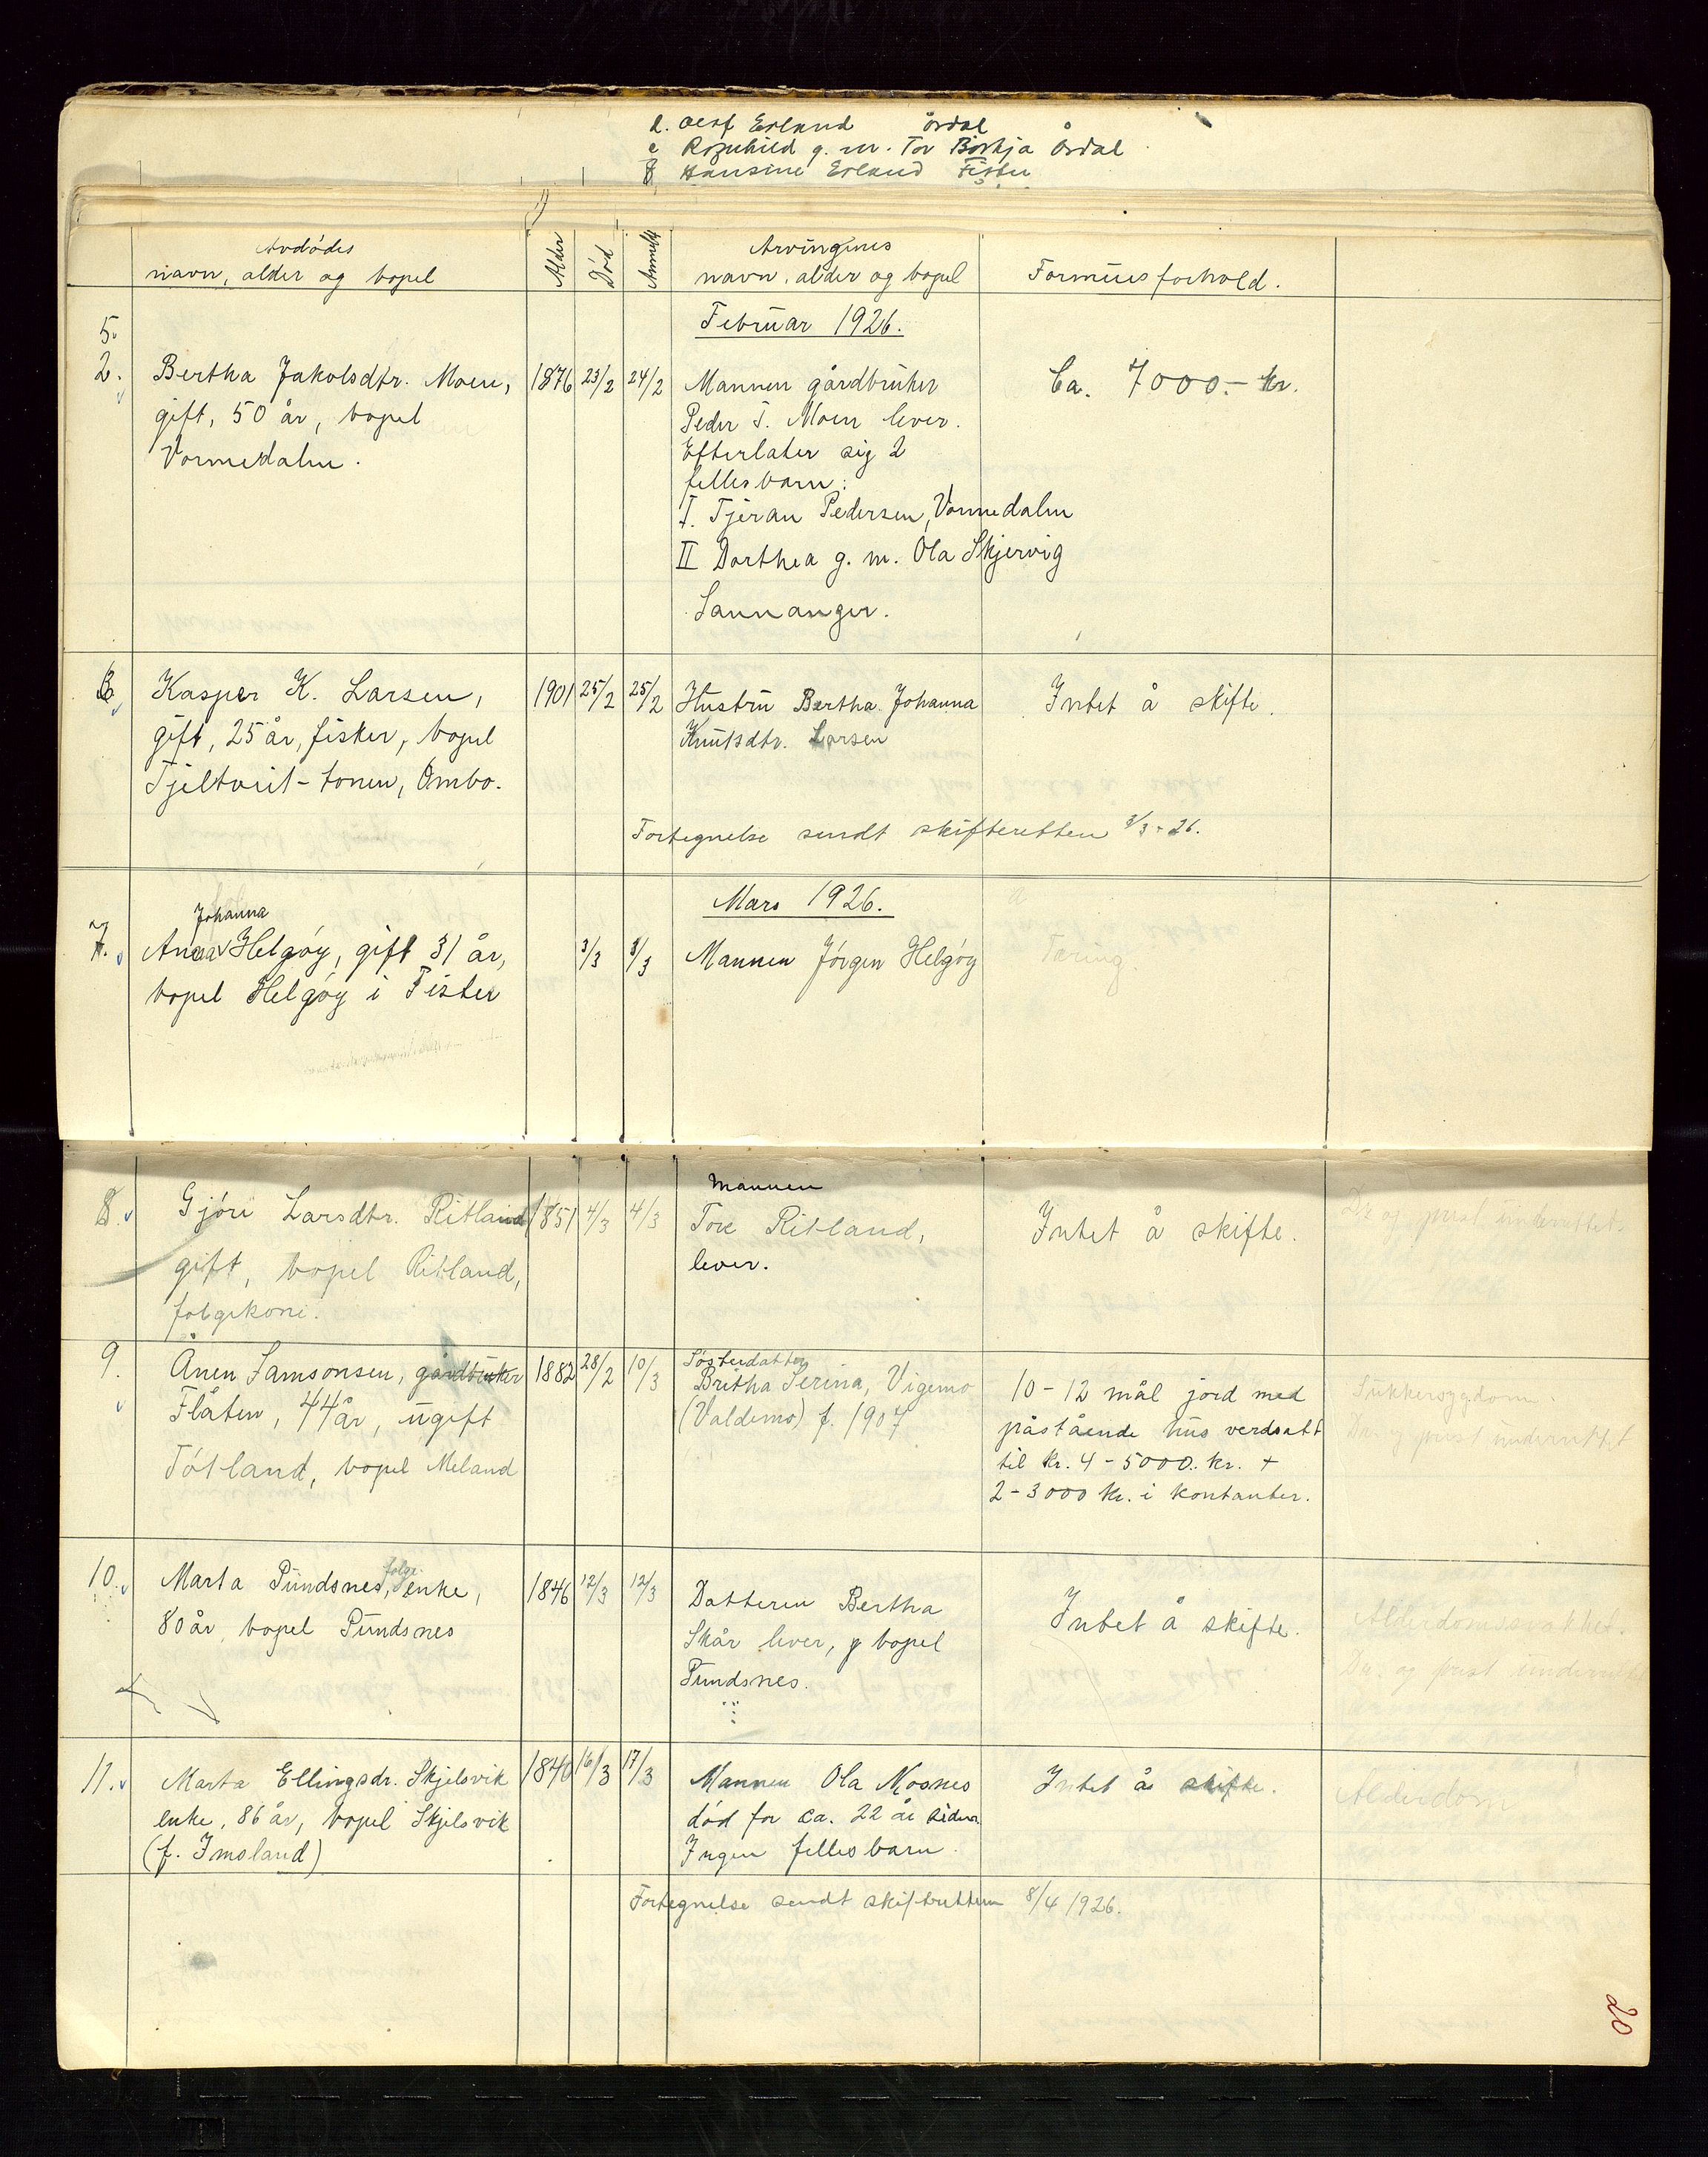 d. Olaf Erland Årdal
e Ragnhild g. m. Tor Borkja Årdal
f Hansine Erland Fister
Avdødes
navn, alder og bopel
Alder
Død
Anmeldt
Arvingenes
navn, alder og bopel
Formuesforhold.
Februar 1926.
5.
2. Bertha Jakobsdtr. Moen, 1876 23/2 24/2 Mannen gårdbruker Ca. 7000.- kr.
gift, 50 år, bopel Peder T. Moen lever.
Vormedalen. Efterlater sig 2
fellesbarn:
I. Tjeran Pedersen, Vormedalen
II Dorthea g. m. Ola Skjervig
Sannanger.
6. Kasper K. Larsen, 1901 25/2 25/2 Hustru Bertha Johanna Intet å skifte.
gift, 25 år, fisker, bopel Knutsdtr. Larsen
Tjeltveit-tonen, Ombo.
Fortegnelse sendt skifteretten 8/3-26.
Mars 1926.
Johanna
7. Anna Helgøy, gift 31 år, 3/3 8/3 Mannen Jørgen Helgøy Tæring.
bopel Helgøy i Fister
Mannen
8. Gjøri Larsdtr. Ritland 1851 4/3 4/3 Tore Ritland, Intet å skifte. Dr. og prest underrettet.
gift, bopel Ritland, lever.
følgekone.
9. Ånen Samsonsen, gårdbruker 1882 28/2 10/3 Søsterdatter
Flåten, 44 år, ugift Britha Serina, Vigemo 10-12 mål jord med Sukkersygdom
Tøtland, bopel Meland (Valdemo) f. 1907 påstående hus verdsatt Dr. og prest underrettet
til kr. 4-5000. kr. +
2-3000 kr. i kontanter.
følge
10. Marta Pundsnes, enke, 1846 12/3 12/3 Datteren Bertha Intet å skifte. Alderdomssvakhet.
80 år, bopel Pundsnes Skår lever, bopel Dr. og prest underrettet
Pundsnes.
11. Marta Ellingsdr. Skjelsvik 1840 16/3 17/3 Mannen Ola Mosnes Intet å skifte. Alderdom
enke, 86 år, bopel Skjelsvik død for ca. 22 år siden
(f. Imsland) Ingen fellesbarn.
Fortegnelse sendt skifteretten 8/4 1926.
20